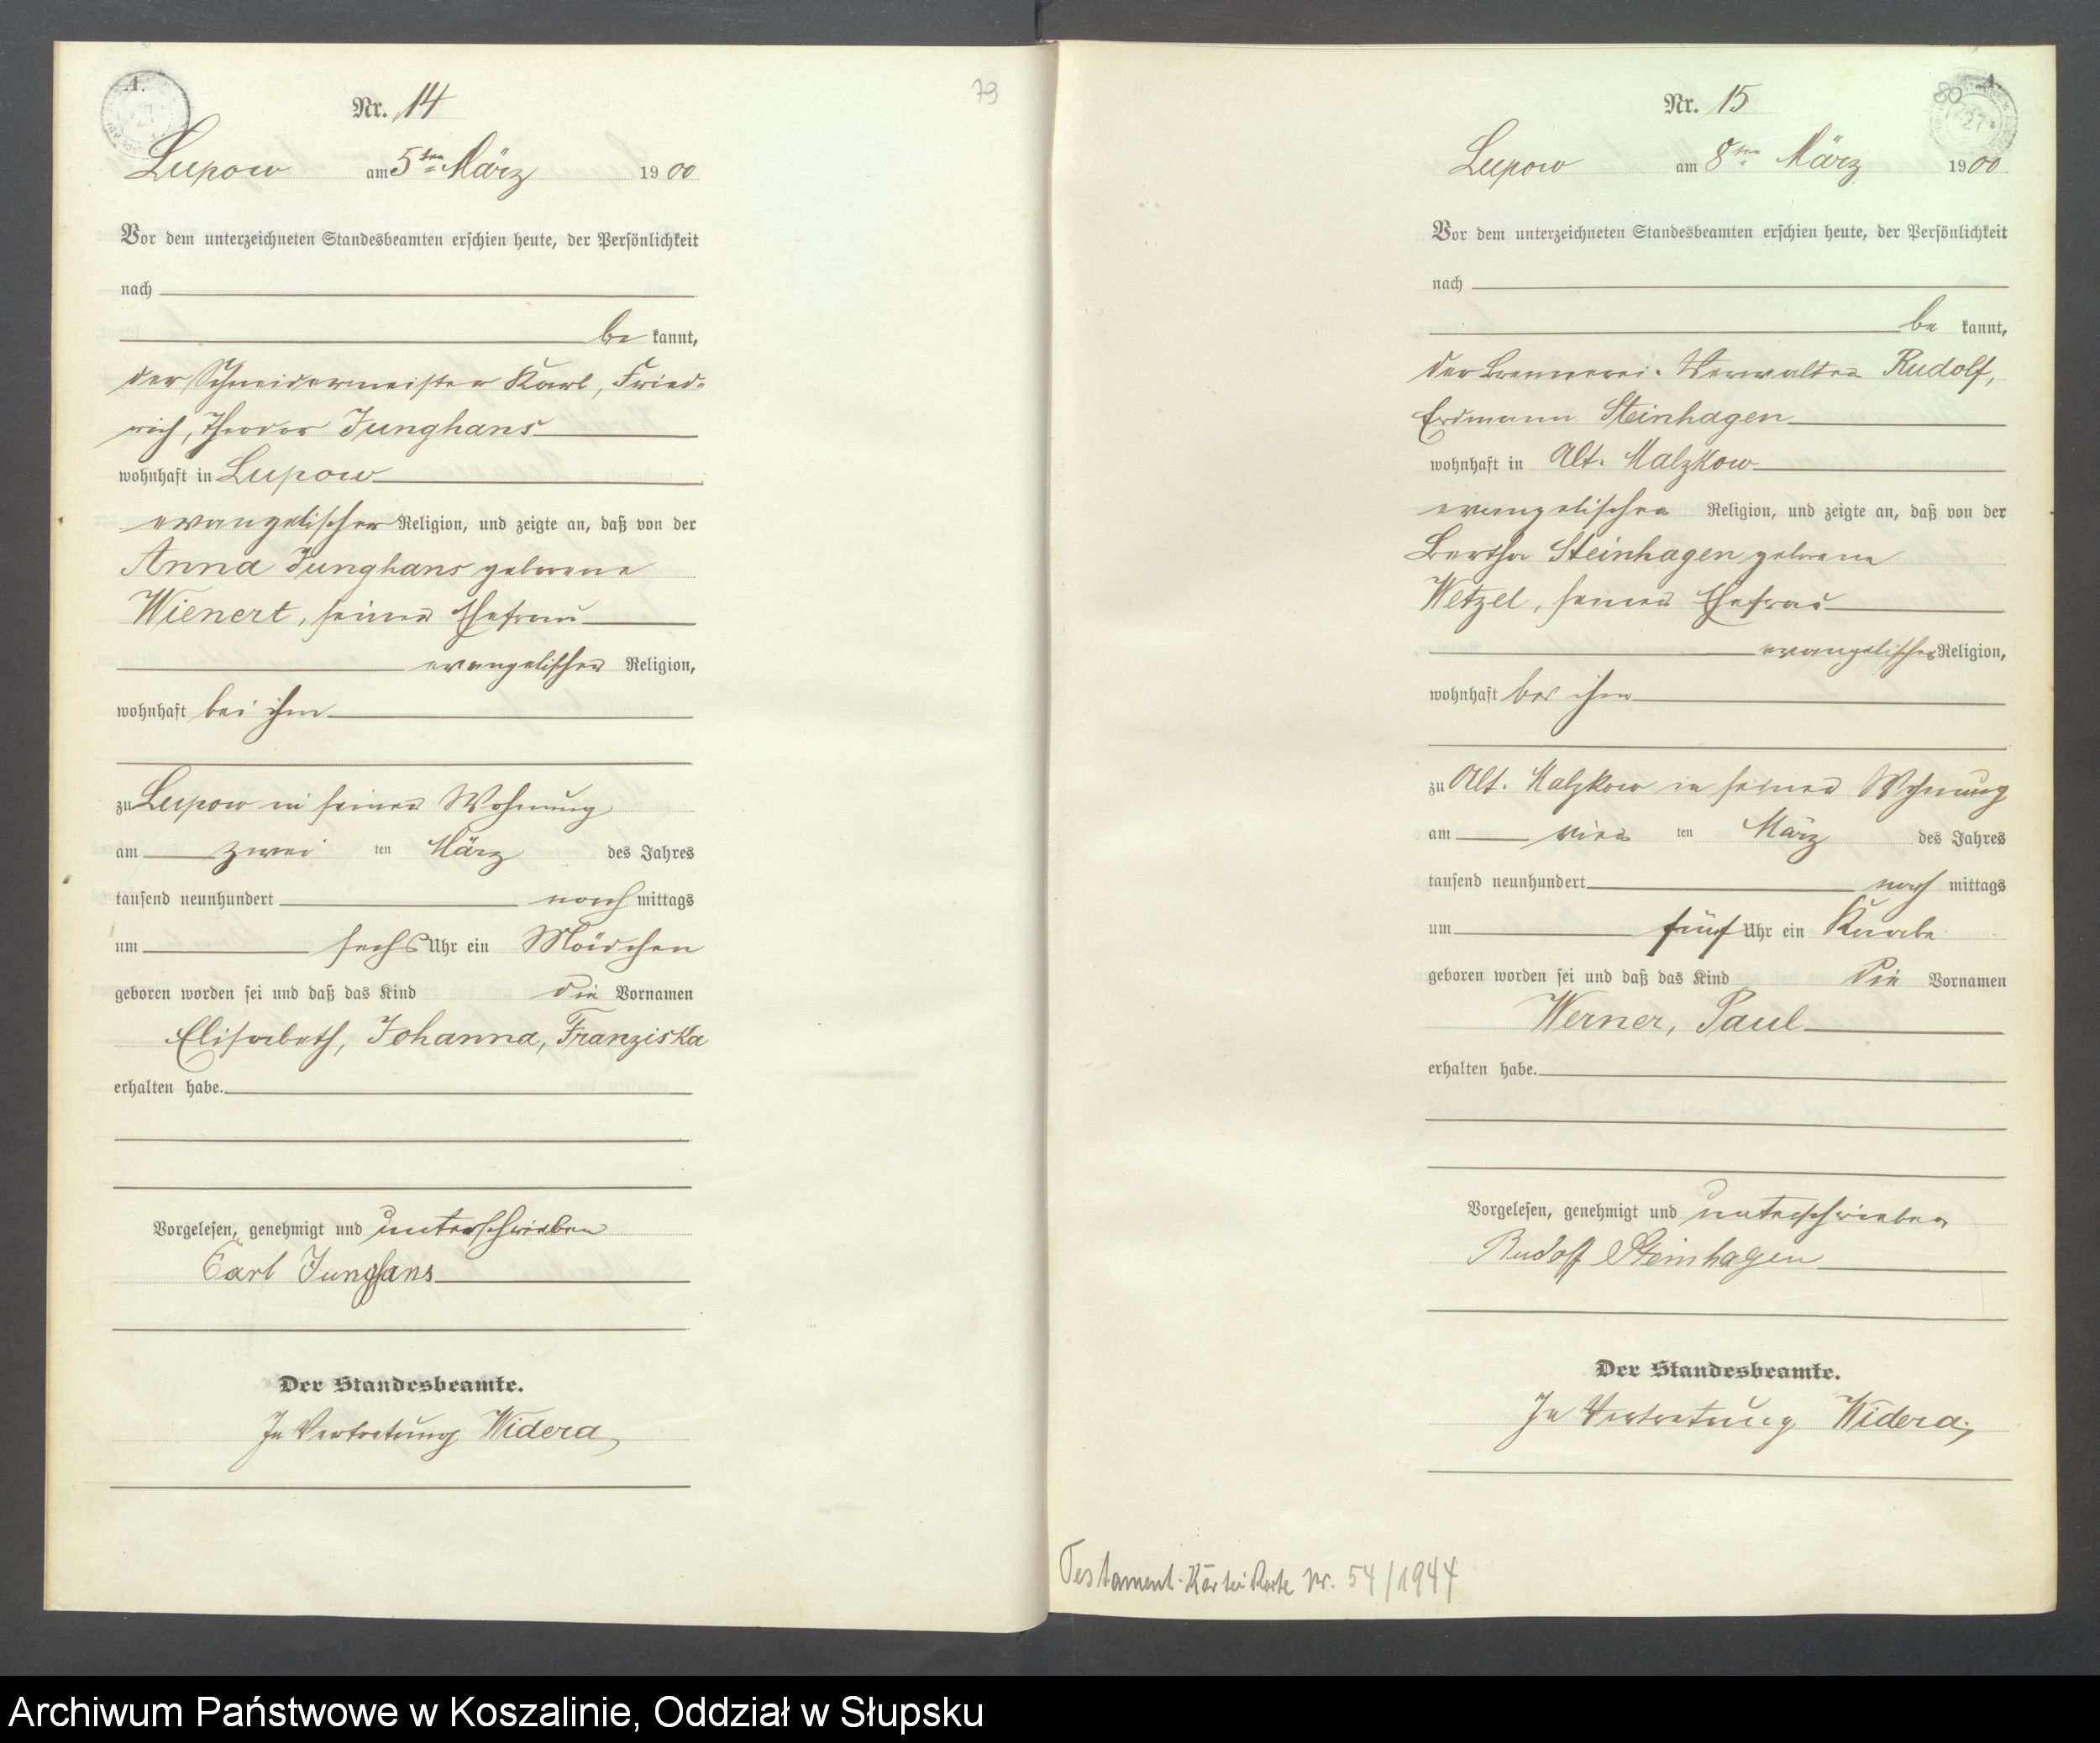 A.
Nr. 14
79
Lupow am 5ten März 1900
Vor dem unterzeichneten Standesbeamten erschien heute, der Persönlichkeit
nach
be kannt,
der Schneidermeister Karl, Fried-
rich, Theodor Junghans
wohnhaft in Lupow
evangelischer Religion, und zeigte an, daß von der
Anna Junghans geborene
Wienert, seiner Ehefrau
evangelischer Religion,
wohnhaft bei ihm
zu Lupow in seiner Wohnung
am zwei ten März des Jahres
tausend neunhundert nach mittags
um sechs Uhr ein Mädchen
geboren worden sei und daß das Kind die Vornamen
Elisabeth, Johanna, Franziska
erhalten habe.
Vorgelesen, genehmigt und unterschrieben
Carl Junghans
Der Standesbeamte.
In Vertretung Widera
A.
80
Nr. 15
Lupow am 8ten März 1900
Vor dem unterzeichneten Standesbeamten erschien heute, der Persönlichkeit
nach
be kannt,
der Brennerei-Verwalter Rudolf,
Erdmann Steinhagen
wohnhaft in Alt-Malzkow
evangelischer Religion, und zeigte an, daß von der
Bertha Steinhagen geborene
Wetzel, seiner Ehefrau
evangelischer Religion,
wohnhaft bei ihm
zu Alt-Malzkow in seiner Wohnung
am vier ten März des Jahres
tausend neunhundert nach mittags
um fünf Uhr ein Knabe
geboren worden sei und daß das Kind die Vornamen
Werner, Paul
erhalten habe.
Vorgelesen, genehmigt und unterschrieben
Rudolf Steinhagen
Der Standesbeamte.
In Vertretung Widera
Testament-Karteikarte Nr. 54/1944
Archiwum Państwowe w Koszalinie, Oddział w Słupsku